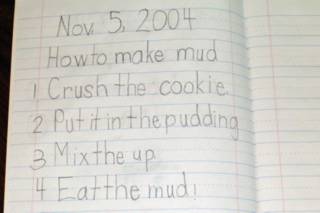 Nov. 5, 2004
How to make mud
1 Crush the cookie.
2 Put it in the pudding
3 Mix the up
4 Eat the mud!